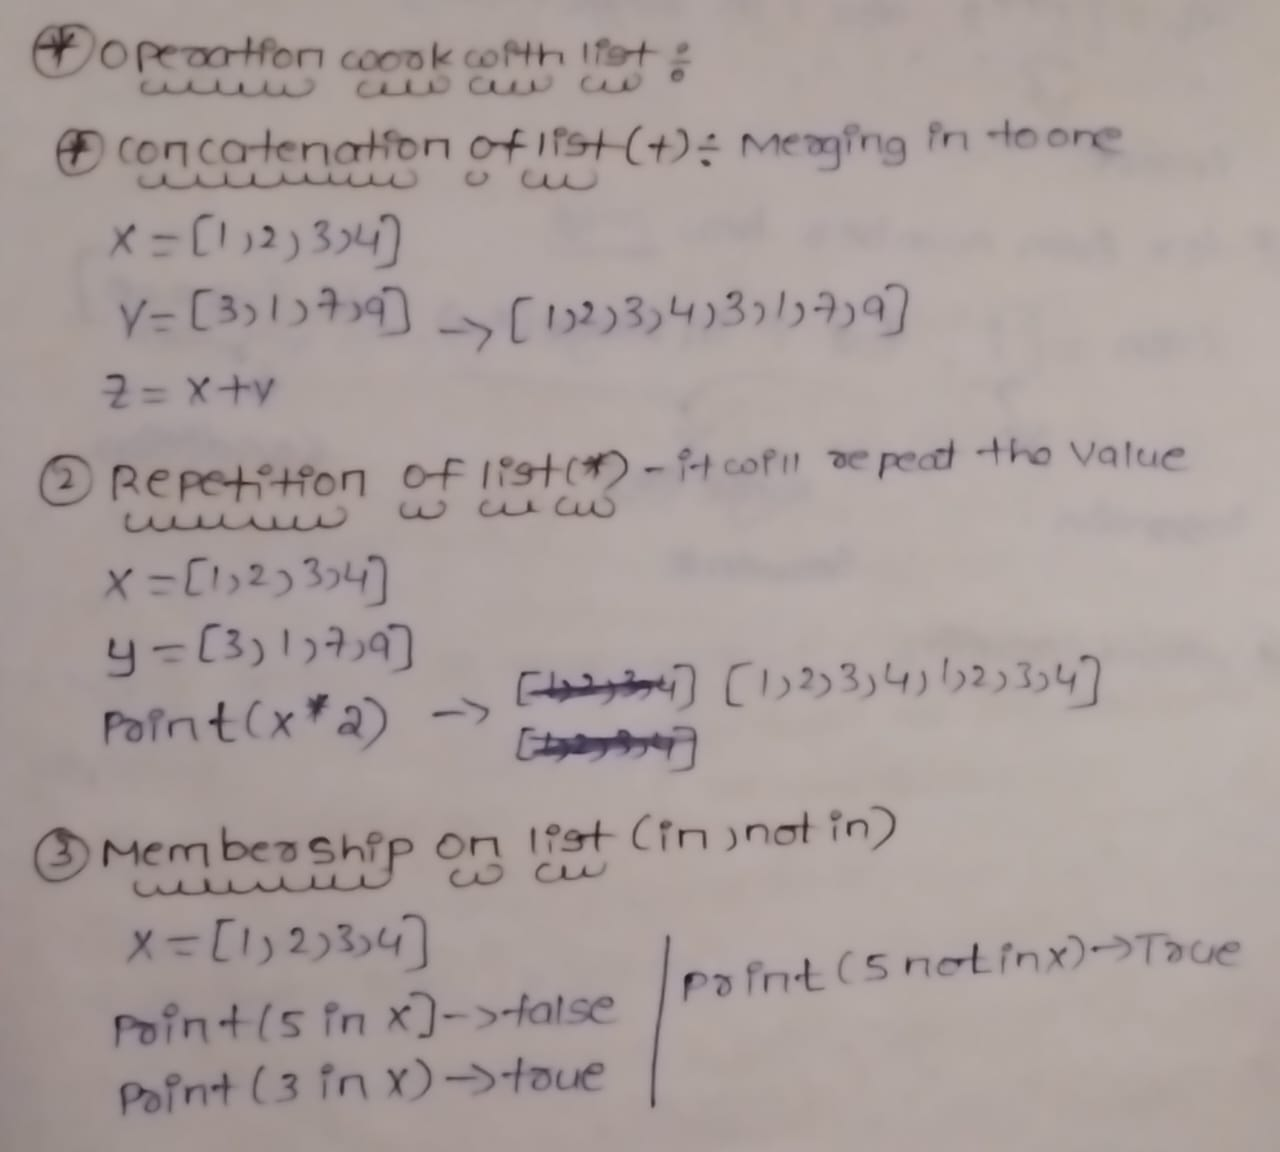 * Operation work with list :
* Concatenation of list (+) : Merging in to one
X = [1,2,3,4]
Y = [3,1,7,9] -> [1,2,3,4,3,1,7,9]
Z = X+Y
2 Repetition of list(*) - it will repeat the value
X = [1,2,3,4]
y = [3,1,7,9]
Print(x*2) -> [1,2,3,4] [1,2,3,4,1,2,3,4]
[1,2,3,4]
3 Membership on list (in, not in)
X = [1,2,3,4]
Print(5 in x] -> false
Print (3 in x) -> true
print (5 not in x) -> True